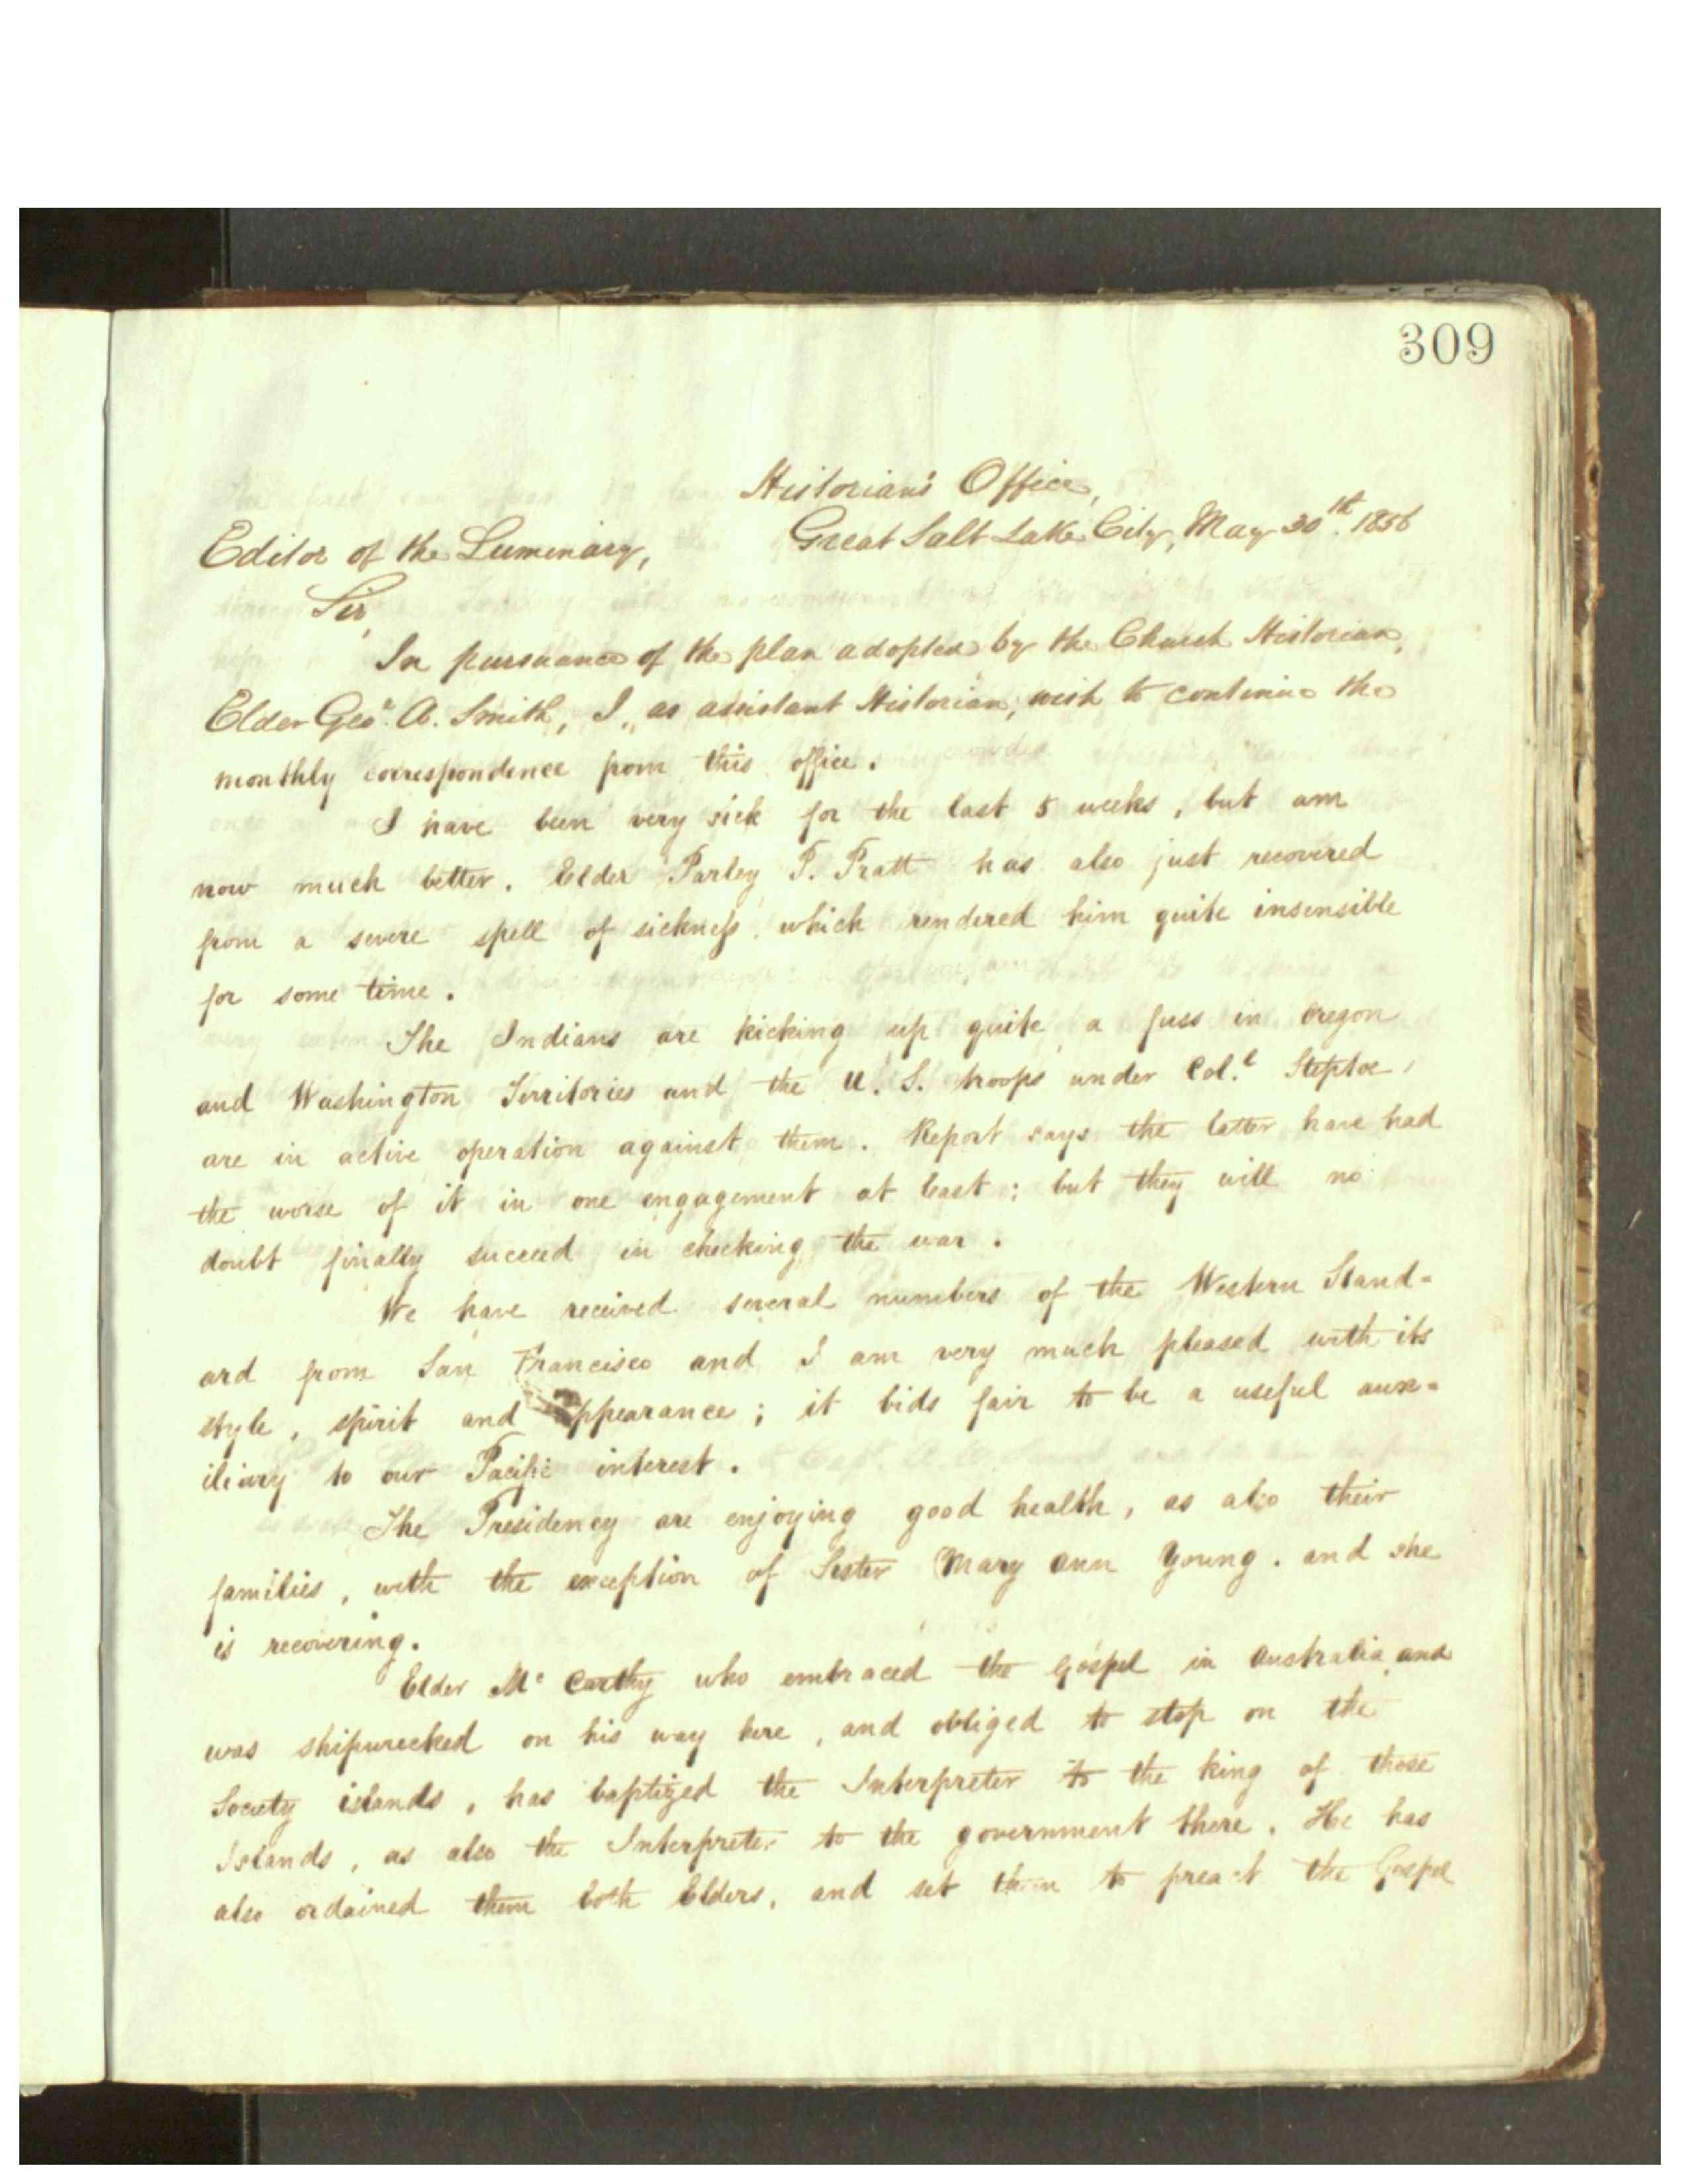 309
Historian's Office,
Great Salt Lake City, May 30th. 1856
Editor of the Luminary,
Sir,
In pursuance of the plan adopted by the Church Historian,
Elder Geo. A. Smith, I, as assistant Historian, wish to continue the
monthly correspondence from this office.
I have been very sick for the last 5 weeks, but am
now much better. Elder Parley P. Pratt has also just recovered
from a severe spell of sickness, which rendered him quite insensible
for some time.
The Indians are kicking up quite a fuss in Oregon
and Washington Territories and the U. S. troops under Col.l Steptoe,
are in active operation against them. Report says the latter have had
the worse of it in one engagement at least; but they will no
doubt finally succeed in checking the war.
We have received several numbers of the Western Stand=
ard from San Francisco and I am very much pleased with its
style, spirit and appearance; it bids fair to be a useful aux=
iliary to our Pacific interest.
The Presidency are enjoying good health, as also their
families, with the exception of Sister Mary Ann Young. and she
is recovering.
Elder Mc Carthy who embraced the Gospel in Australia and
was shipwrecked on his way here, and obliged to stop on the
Society islands, has baptized the Interpreter to the king of those
Islands, as also the Interpreter to the government there. He has
also ordained them both Elders, and set them to preach the Gospel